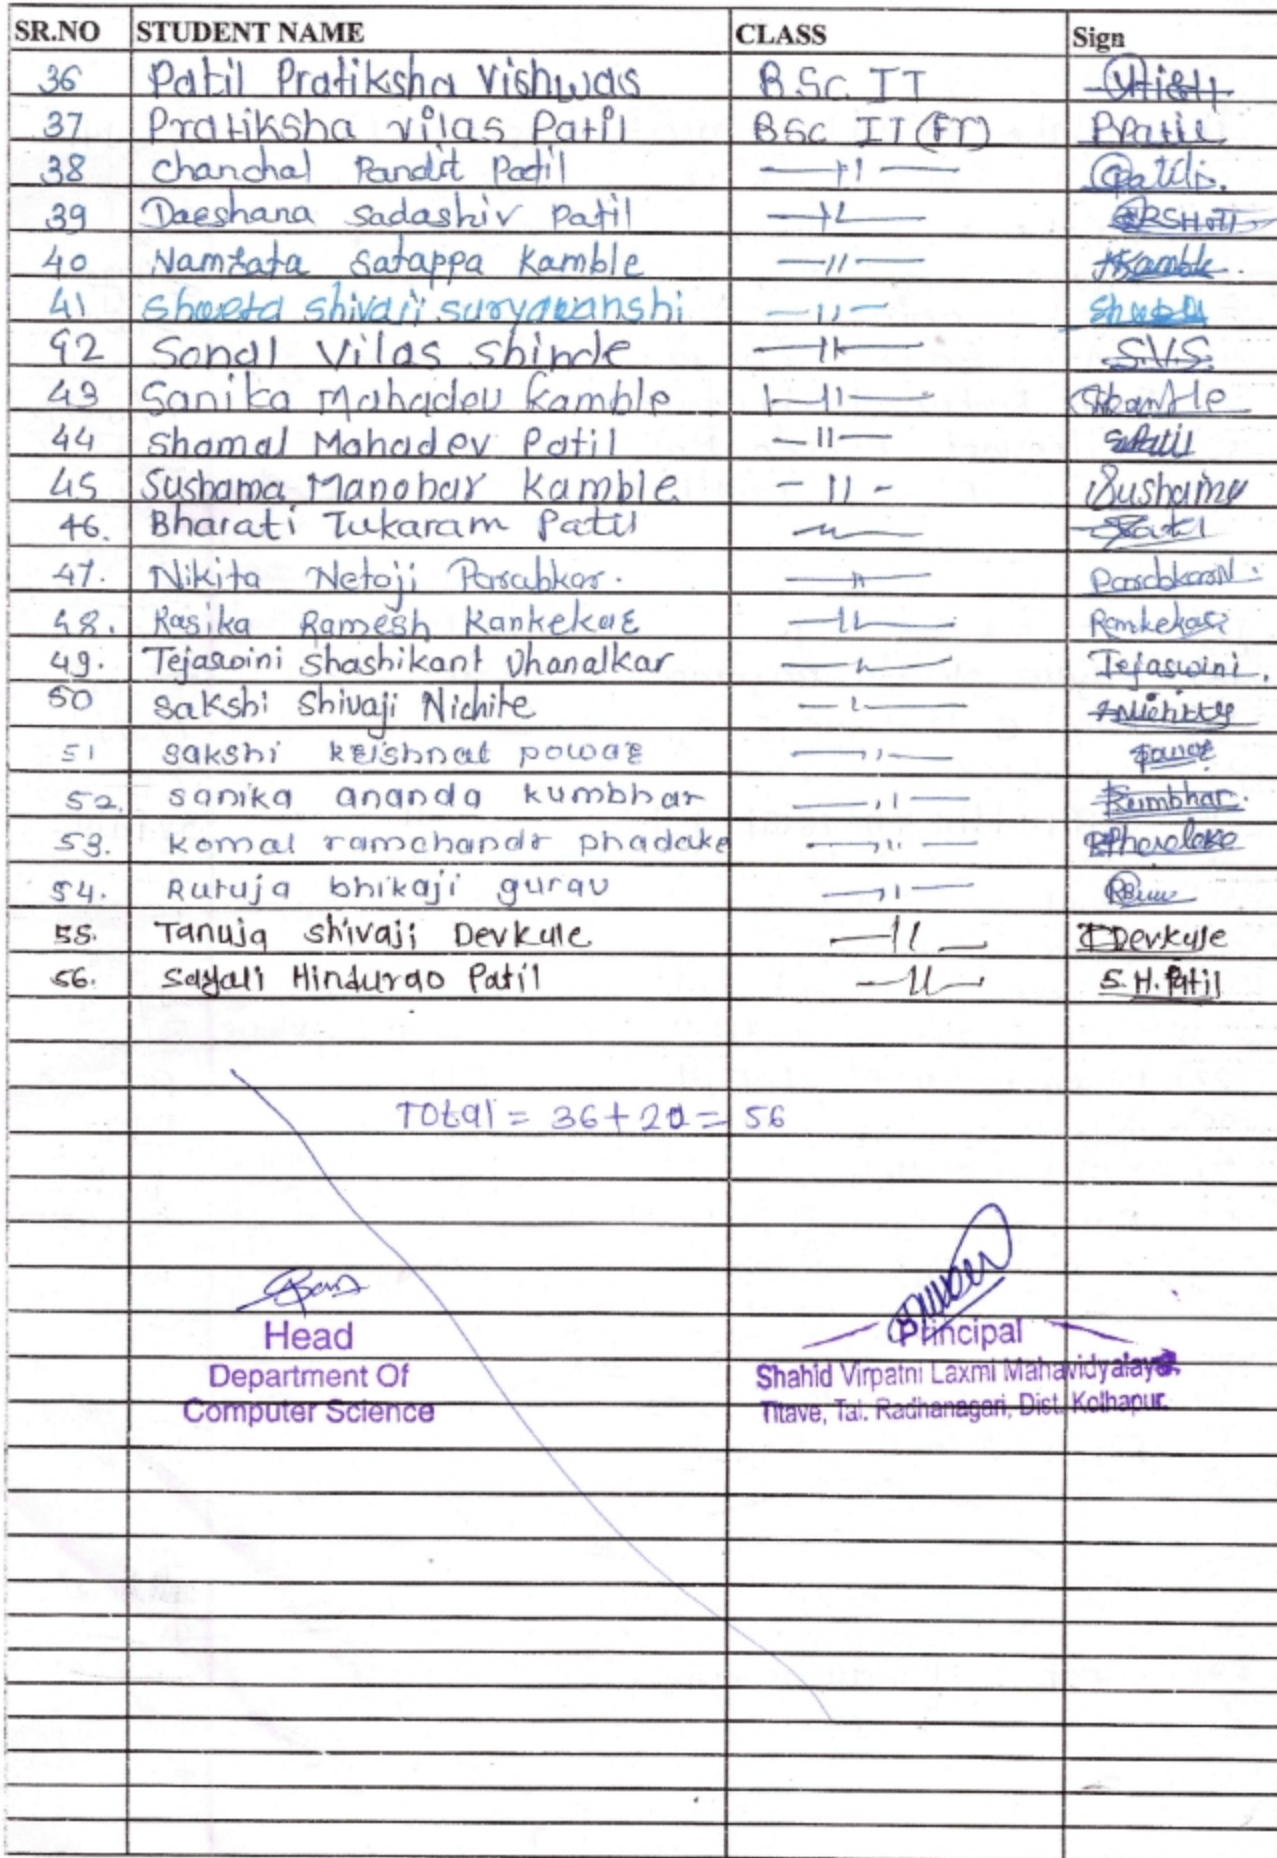 SR.NO STUDENT NAME CLASS Sign
36 Patil Pratiksha Vishwas B.Sc. IT
37 Pratiksha vilas Patil BSc IT (FY) PPatil
38 chanchal Pandit Patil —11— Cpatil.
39 Daeshana sadashiv Patil —11—
40 Namrata satappa Kamble —11— Kamble.
41 Shweta shivaji suryawanshi —11—
42 Sonal Vilas shinde —11— S.V.S.
43 Sanika Mahadev kamble —11—
44 Shamal Mahadev Patil —11— SPatil
45 Sushama Manohar Kamble —11— Sushama
46. Bharati Tukaram Patil —11—
47. Nikita Netaji Parabkar. —11—
48. Rasika Ramesh Kankekar —11—
49. Tejaswini Shashikant Vhanalkar —11— Tejaswini.
50 sakshi Shivaji Nichite —11—
51 sakshi krishnat powar —11— powar
52. sanika ananda kumbhar —11— Kumbhar.
53. komal ramchandr phadake —11—
54. Rutuja bhikaji gurav —11—
55. Tanuja shivaji Devkule —11— TDevkule
56. Sayali Hindurao Patil —11— S.H.Patil
Total = 36 + 20 = 56
Head Principal
Department Of Shahid Virpatni Laxmi Mahavidyalaya.
Computer Science Titave, Tal. Radhanagari, Dist. Kolhapur.